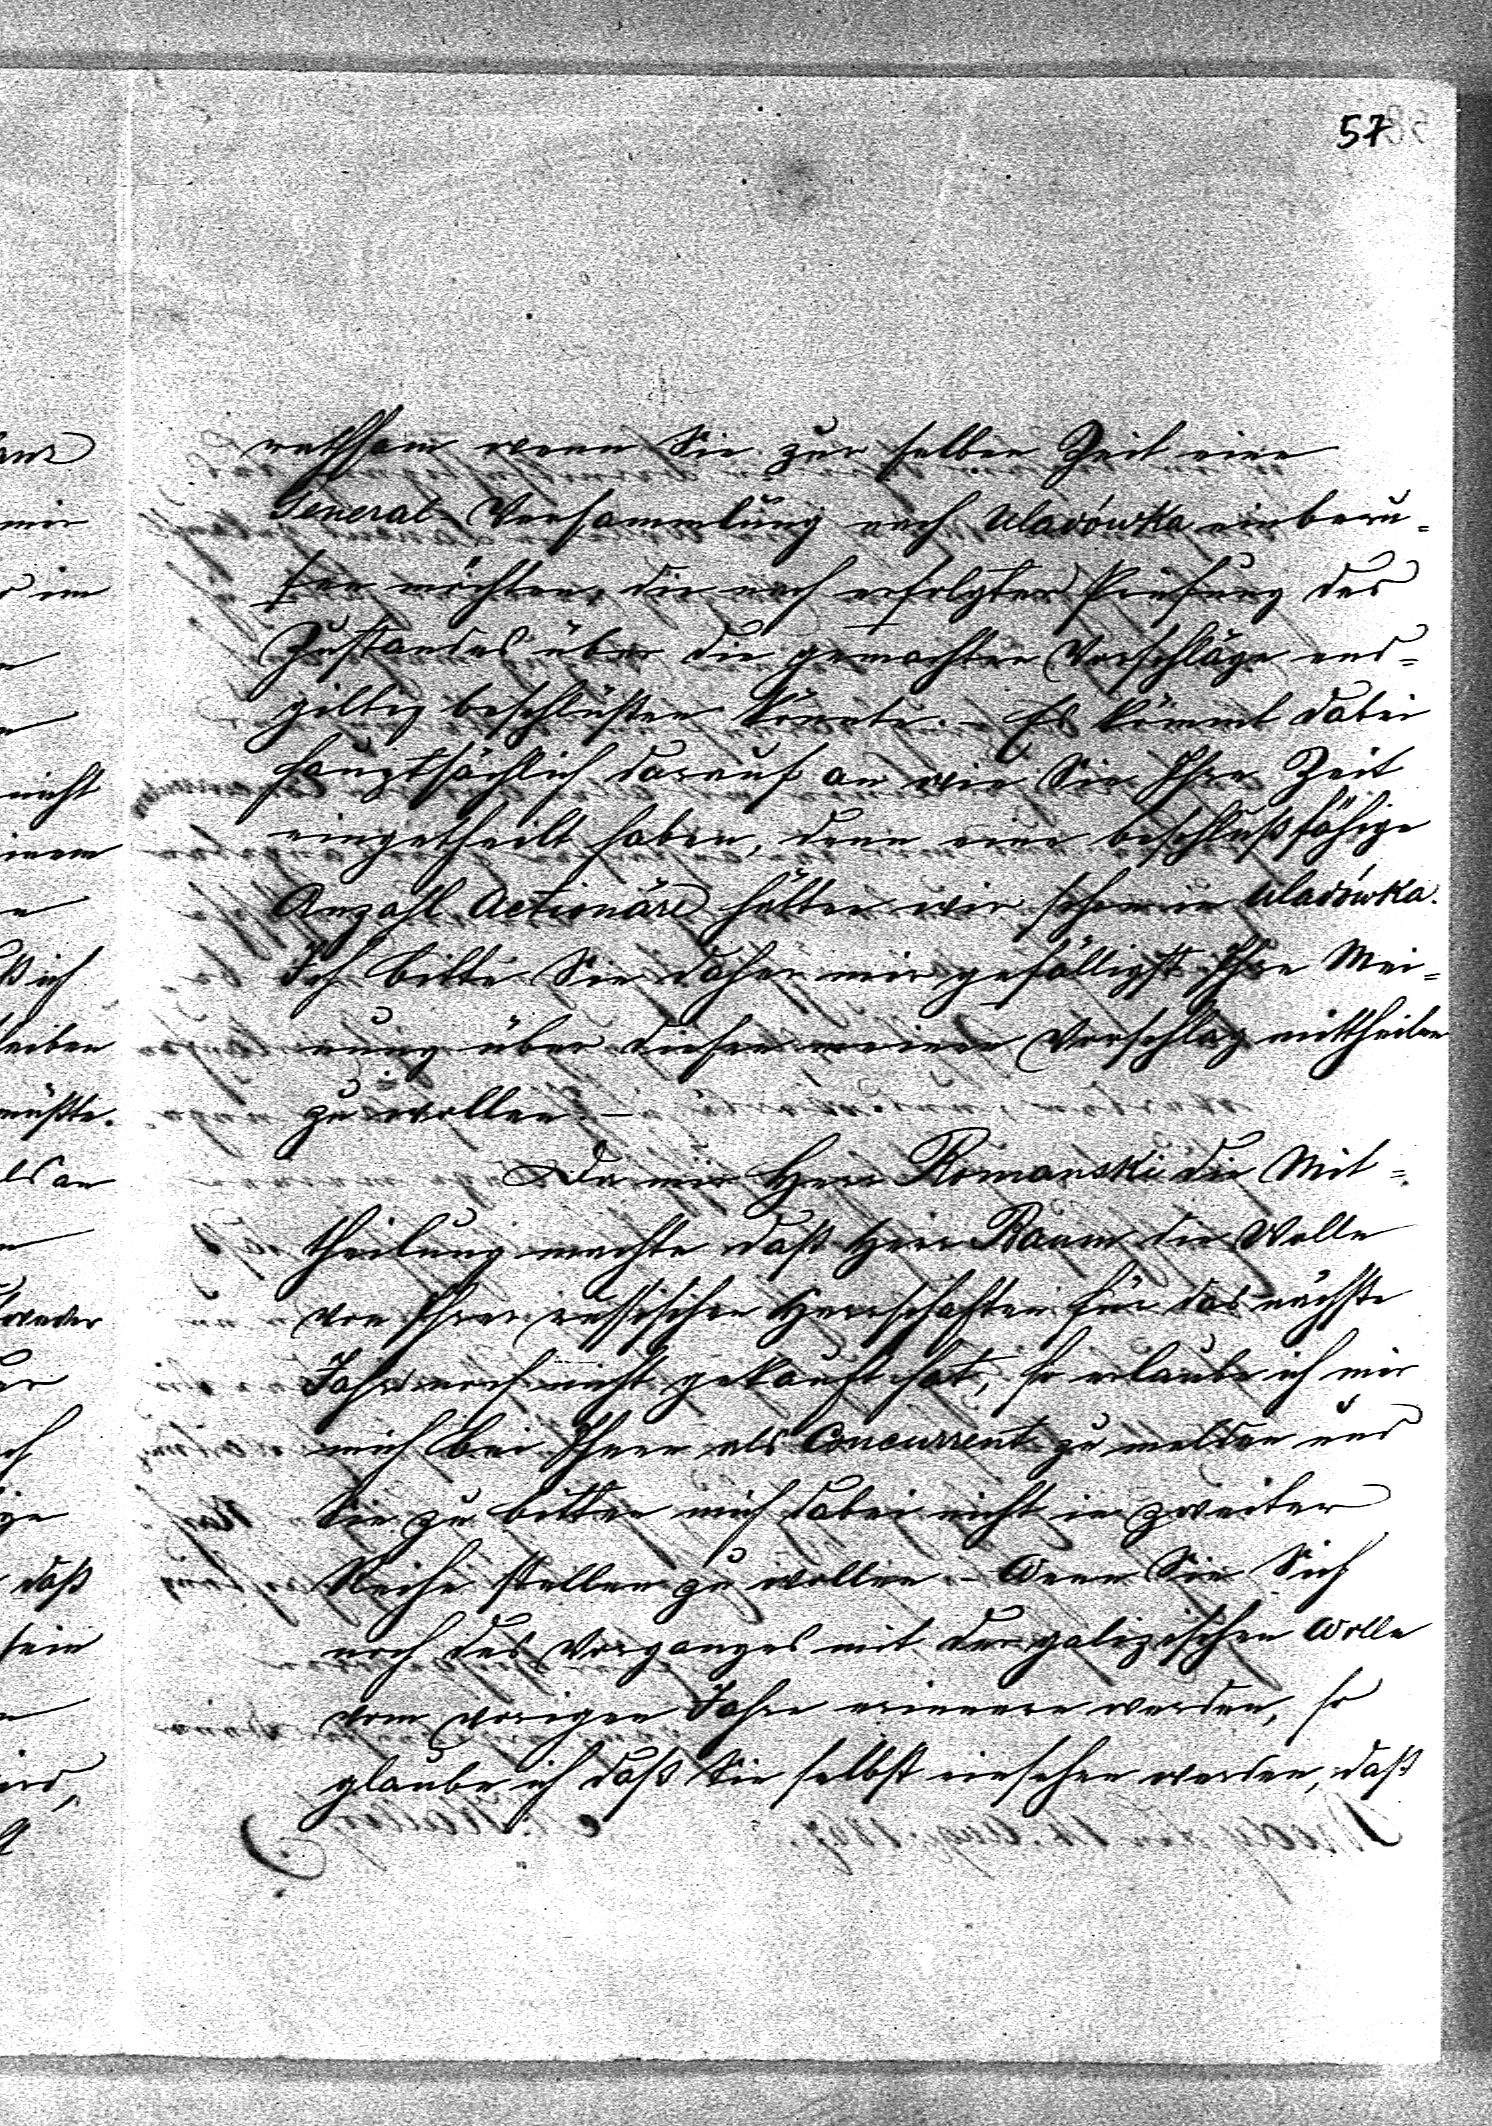 57
rathsam wenn Sie zur selben Zeit eine
General-Versammlung nach Uladówka einberu=
fen möchten, die nach erfolgter Prüfung des
Zustandes über die gemachten Vorschläge end=
giltig beschlüßen könnte. – Es kömmt dabei
hauptsächlich darauf an wie Sie Ihre Zeit
eingetheilt haben, denn eine beschlußfähige
Anzahl Actionäre hätten wir schon in Uladówka.
Ich bitte Sie daher mir gefälligst Ihre Mei=
nung über diesen meinen Vorschlag mittheilen
zu wollen –
Da mir Herr Romanski die Mit=
theilung machte daß Herr Baum die Wolle
von Ihren russischen Herrschaften für das nächste
Jahr noch nicht gekauft hat, so erlaube ich mir
mich bei Ihnen als Concurrent zu melden und
Sie zu bitten mich dabei nicht in zweiter
Reihe stellen zu wollen – Wenn Sie Sich
noch des Vorganges mit der galizischen Wolle
vom vorigen Jahre erinnern werden, so
glaube ich daß Sie selbst einsehen werden, daß